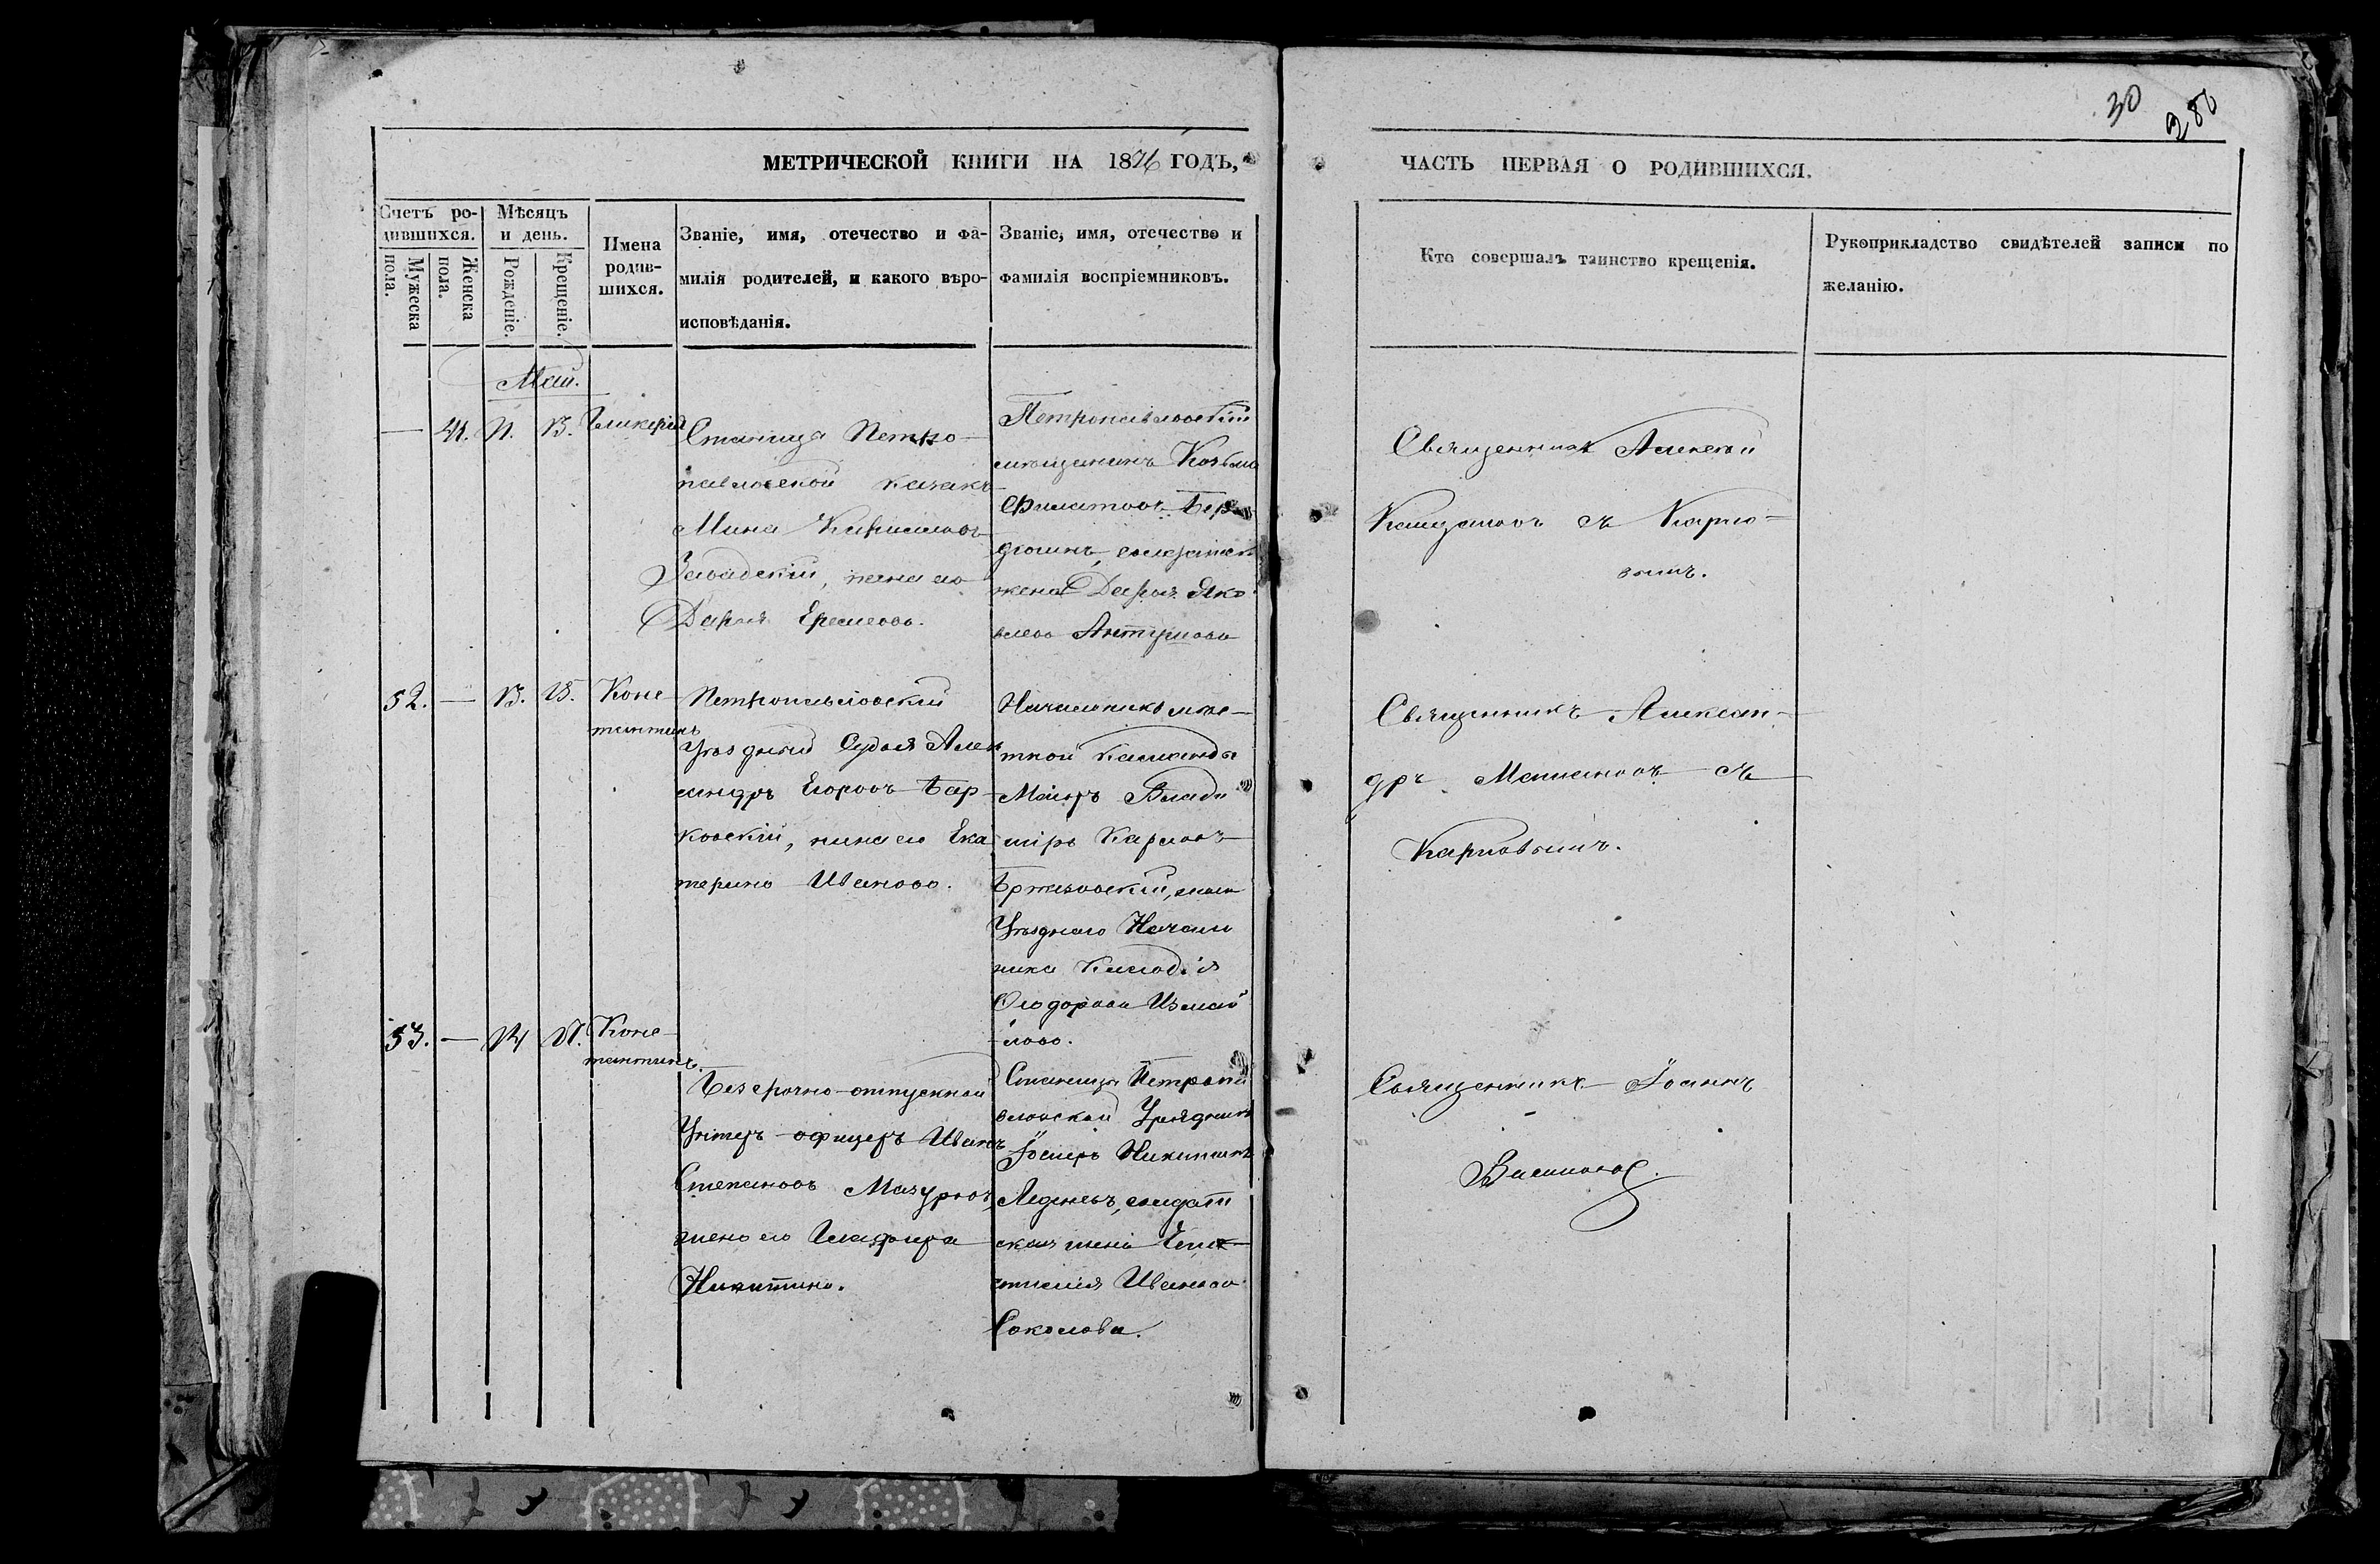 30
280
МЕТРИЧЕСКОЙ КНИГИ НА 1876 ГОДЪ,
ЧАСТЬ ПЕРВАЯ О РОДИВШИХСЯ.
Счетъ ро-
дившихся.
Мужеска
пола.
Женска
пола.
Мѣсяцъ
и день.
Рожденіе.
Крещеніе.
Имена
родив-
шихся.
Званіе, имя, отечество и фа-
милія родителей, и какого вѣро-
исповѣданія.
Званіе, имя, отечество и
фамилія воспріемниковъ.
Кто совершалъ таинство крещенія.
Рукоприкладство свидѣтелей записи по
желанію.
Май.
— 41. 11. 13. Гликерія
Станица Петро-
павловской казакъ
Мина
Завадскій, жена его
Дарья Ермеева.
Петропавловскій
мѣщанинъ Козьма
Филатовъ
жена Дарья Яко-
влева
Священникъ Алексей
съ Карпо-
вымъ.
52. — 13. 15. Конс-
тантинъ
Петропавловскій
Уѣздный Судья Алек
сандръ Егоровъ Бар-
ковскій, жена его Ека
терина Иванова.
Начальникъ мѣс-
тной команды
Маіоръ Влади
міръ Карловъ
Бржезовскій, жена
Уѣзднаго Началь
ника Клавдія
Ѳеодорова Измай
лова.
Священникъ Алексан-
дръ съ
Карповымъ.
53. — 14 17. Конс-
тантинъ.
Безсрочно-отпускной
Унтеръ-офицеръ Иванъ
Степановъ Мазуровъ,
жена его Глафира
Никитина.
Станицы Петропа
вловской Урядникъ
Іосифъ Никитинъ
Леденевъ, солдатт
ская жена
Иванова
Соколова.
Священникъ Іоаннъ